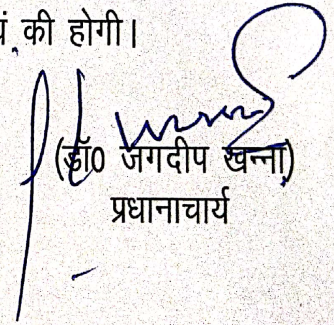 की होगी।
(डॉ0 जगदीप खन्ना)
प्रधानाचार्य